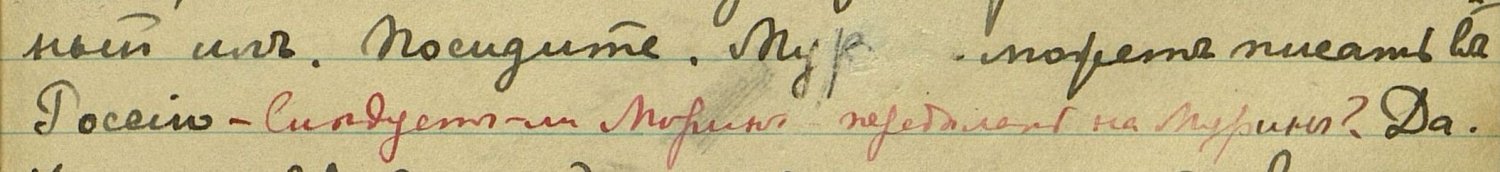 ный имъ. Посидите. Мур можетъ писать въ
Россію – Слѣдуетъ-ли Морины передѣлать на Мурины? Да.